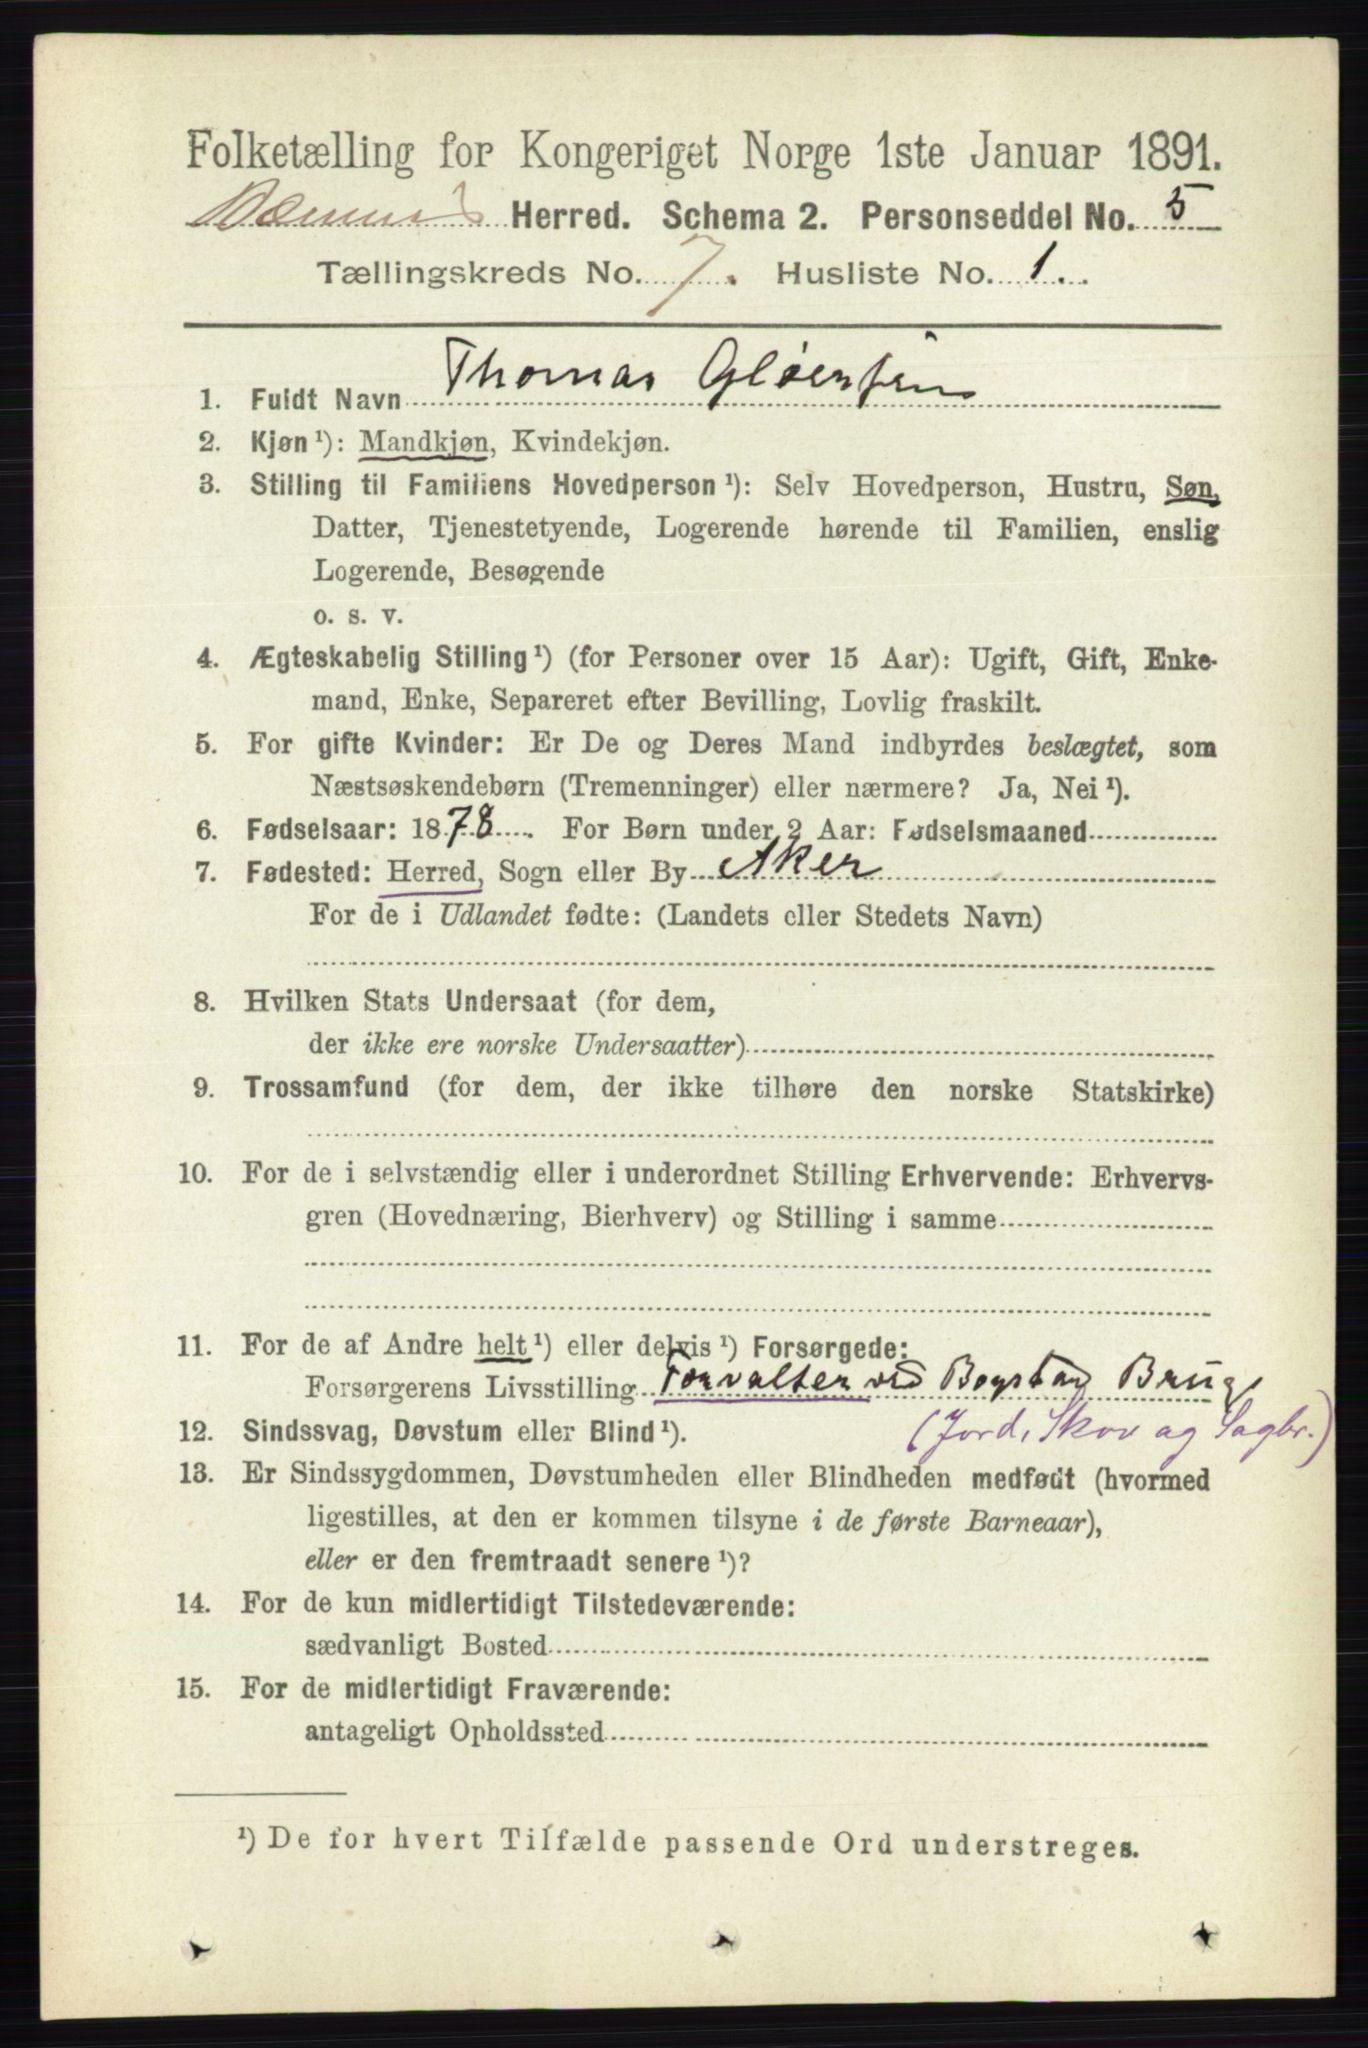 Folketælling for Kongeriget Norge 1ste Januar 1891.
Herred. Schema 2. Personseddel No. 5
Tællingskreds No. 7. Husliste No. 1.
1. Fuldt Navn Thomas Gløersen
2. Kjøn ¹): Mandkjøn, Kvindekjøn.
3. Stilling til Familiens Hovedperson ¹): Selv Hovedperson, Hustru, Søn,
Datter, Tjenestetyende, Logerende hørende til Familien, enslig
Logerende, Besøgende
o. s. v.
4. Ægteskabelig Stilling ¹) (for Personer over 15 Aar): Ugift, Gift, Enke-
mand, Enke, Separeret efter Bevilling, Lovlig fraskilt.
5. For gifte Kvinder: Er De og Deres Mand indbyrdes beslægtet, som
Næstsøskendebørn (Tremenninger) eller nærmere? Ja, Nei ¹).
6. Fødselsaar: 1878. For Børn under 2 Aar: Fødselsmaaned
7. Fødested: Herred, Sogn eller By Aker
For de i Udlandet fødte: (Landets eller Stedets Navn)
8. Hvilken Stats Undersaat (for dem,
der ikke ere norske Undersaatter)
9. Trossamfund (for dem, der ikke tilhøre den norske Statskirke)
10. For de i selvstændig eller i underordnet Stilling Erhvervende: Erhvervs-
gren (Hovednæring, Bierhverv) og Stilling i samme
11. For de af Andre helt ¹) eller delvis ¹) Forsørgede:
Forsørgerens Livsstilling Forvalter ved Bogstad Brug
(Jord, Skov og Sagbr.)
12. Sindssvag, Døvstum eller Blind ¹).
13. Er Sindssygdommen, Døvstumheden eller Blindheden medfødt (hvormed
ligestilles, at den er kommen tilsyne i de første Barneaar),
eller er den fremtraadt senere ¹)?
14. For de kun midlertidigt Tilstedeværende:
sædvanligt Bosted
15. For de midlertidigt Fraværende:
antageligt Opholdssted
¹) De for hvert Tilfælde passende Ord understreges.